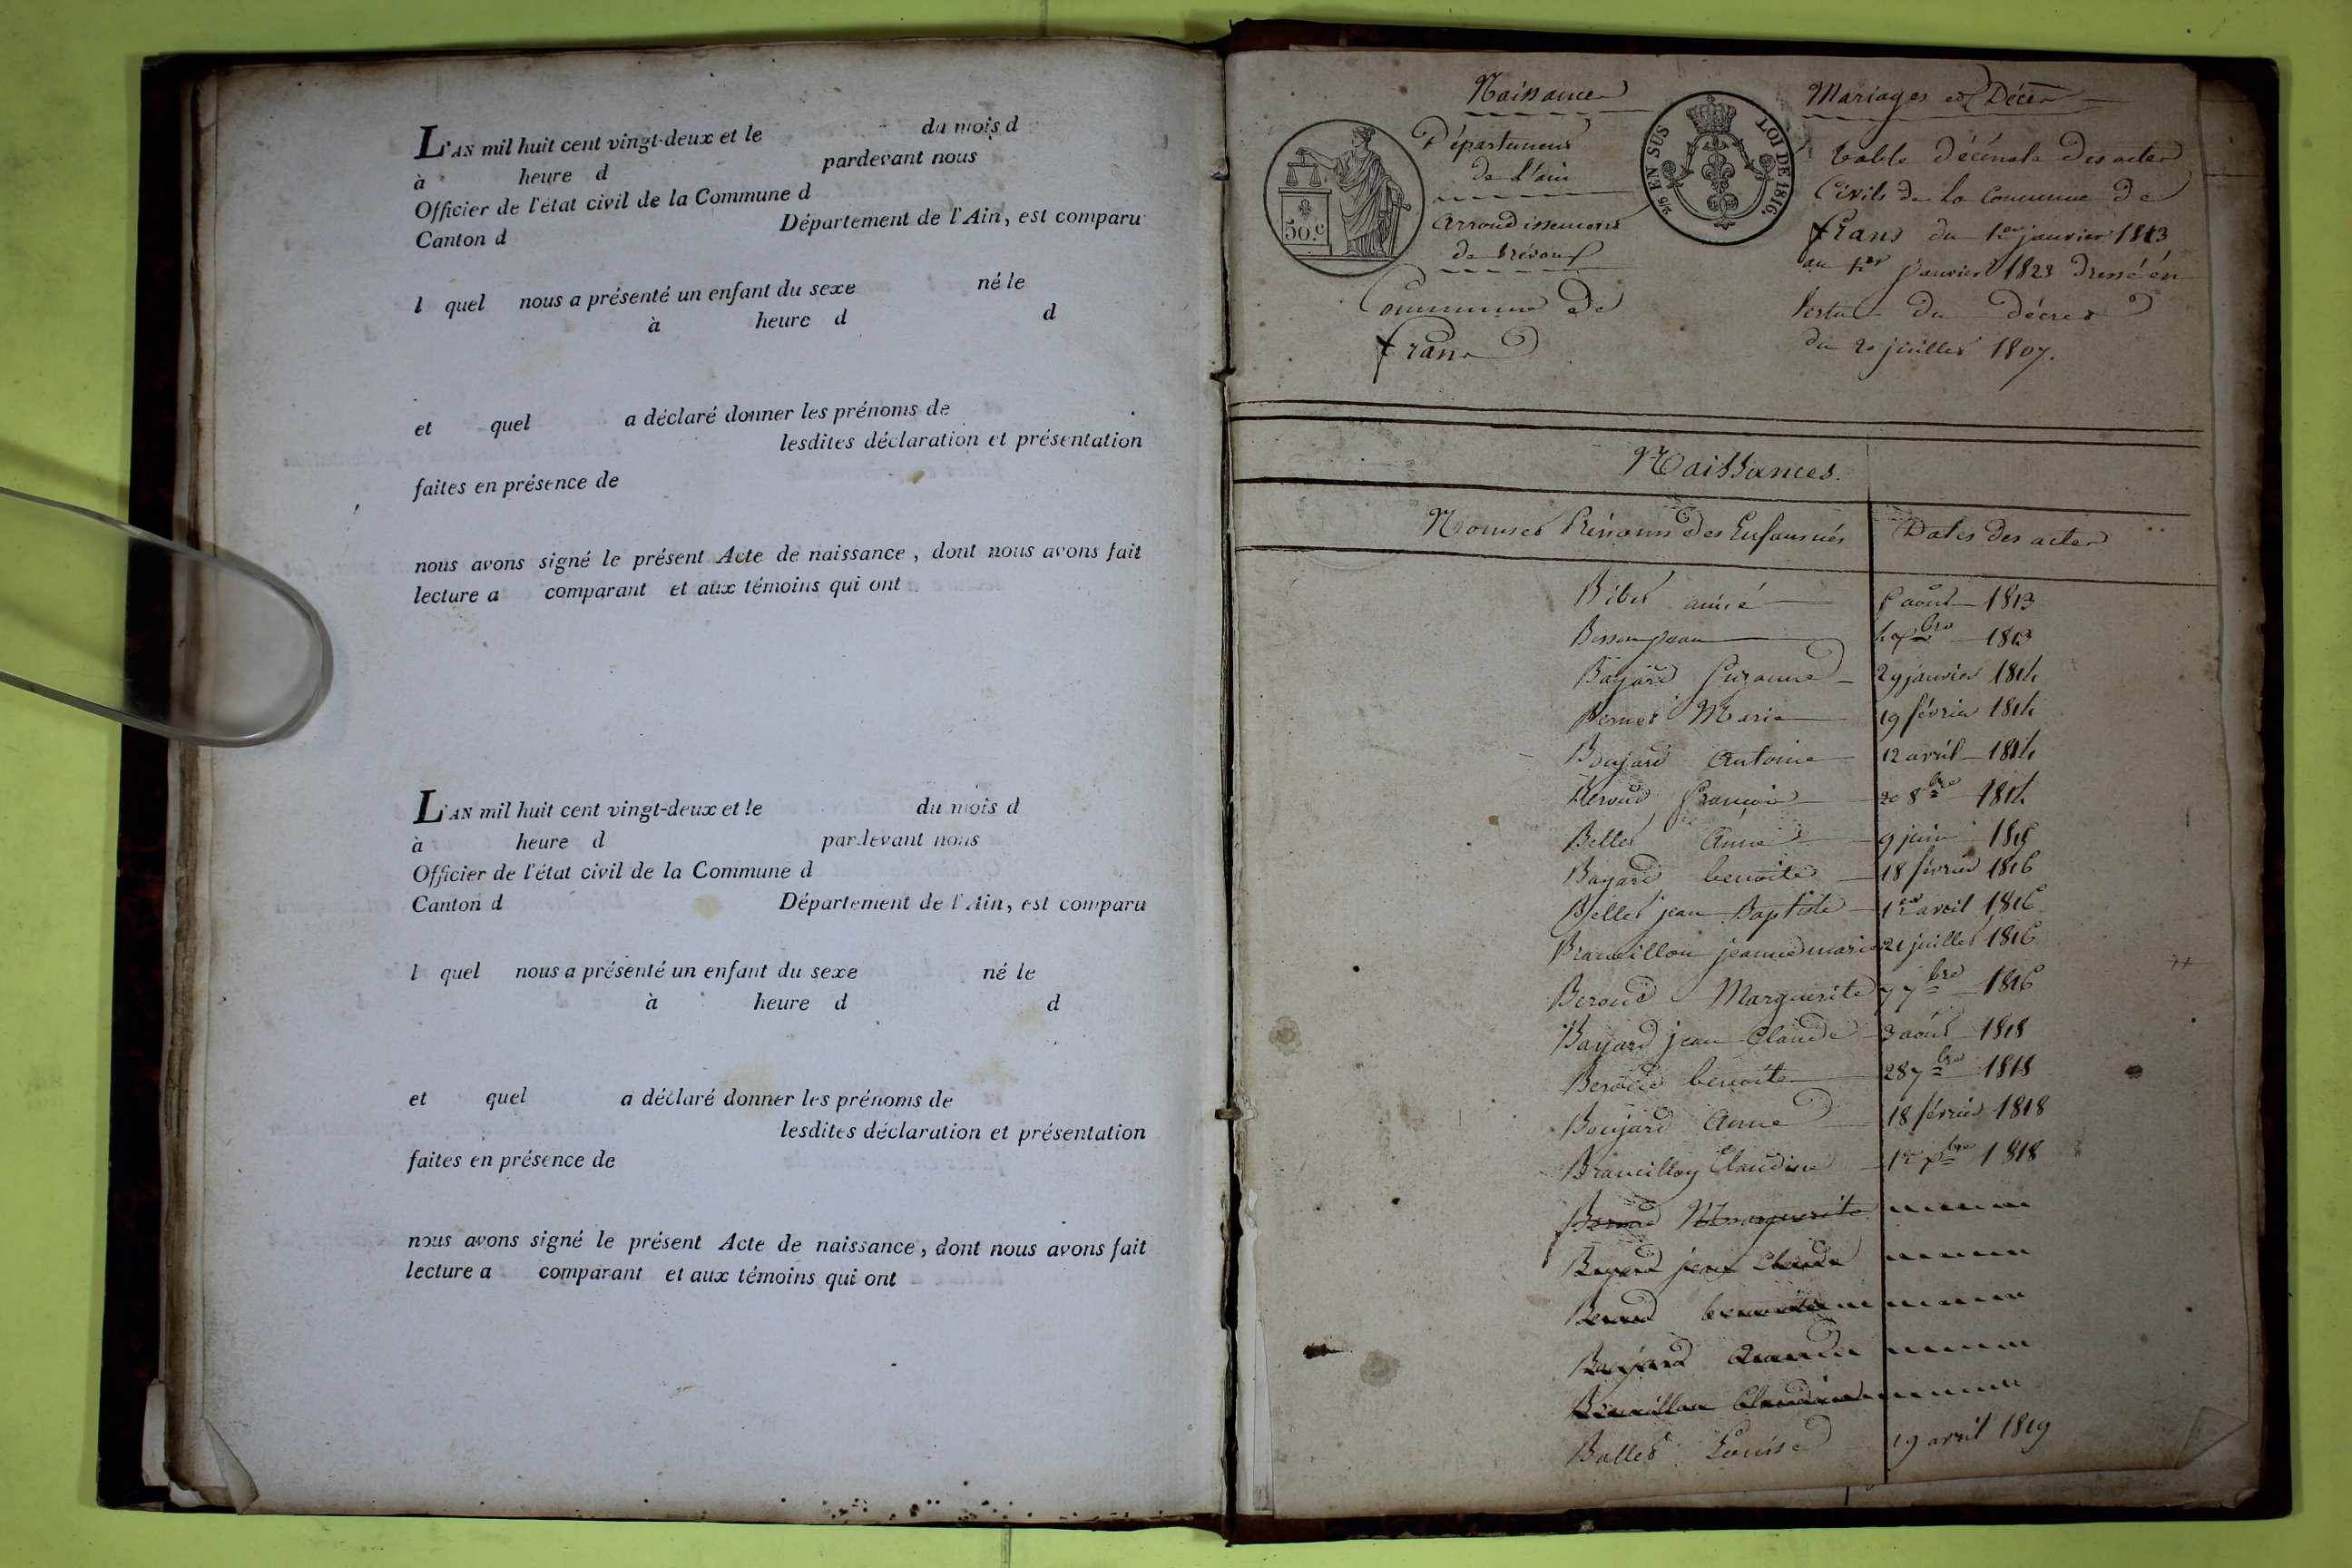 L'AN mil huit cent vingt-deux et le du mois d
à heure d pardevant nous
Officier de l'état civil de la Commune d
Canton d Département de l'Ain, est comparu
l quel nous a présenté un enfant du sexe né le
à heure d d
et quel a déclaré donner les prénoms de
lesdites déclaration et présentation
faites en présence de
nous avons signé le présent Acte de naissance, dont nous avons fait
lecture a comparant et aux témoins qui ont
L'AN mil huit cent vingt-deux et le du mois d
à heure d pardevant nous
Officier de l'état civil de la Commune d
Canton d Département de l'Ain, est comparu
l quel nous a présenté un enfant du sexe né le
à heure d d
et quel a déclaré donner les prénoms de
lesdites déclaration et présentation
faites en présence de
nous avons signé le présent Acte de naissance, dont nous avons fait
lecture a comparant et aux témoins qui ont
Naissance
Département
de l'ain
arrondissement
de trévoux
Commune de
frans
50.c
2/5 EN SUS LOI DE 1816.
Mariages et Décès
table décénale des actes
Civils de la Commune de
frans du 1er janvier 1813
au 1er janvier 1823 dressé en
vertu du décret
du 20 juillet 1807.
Naissances.
Noms et Prénoms des Enfans nés Dates des actes
aimé août 1813
Besson jean 1813
Bayard Suzanne 29 janvier 1814
Bernet Marie 19 février 1814
Boujard Antoine 12 avril 1814
Beroud françois 20 8bre 1814
Bellet Anne 9 juin
Bayard benoite 18 février 1816
Bellet jean Baptiste 1er avril 1816
Brancillon jeanne marie 21 juillet 1816
Beroud Marguerite 7 7bre 1816
Bayard jean Claude 3 août 1818
Beroud benoite 28 7bre 1818
Boujard Anne 18 février 1818
Brancillon Claudine 1er bre 1818
Beroud Marguerite
Bayard jean Claude
Beroud benoite
Boujard
Brancillon Claudine
Ballet Louise 19 avril 1819